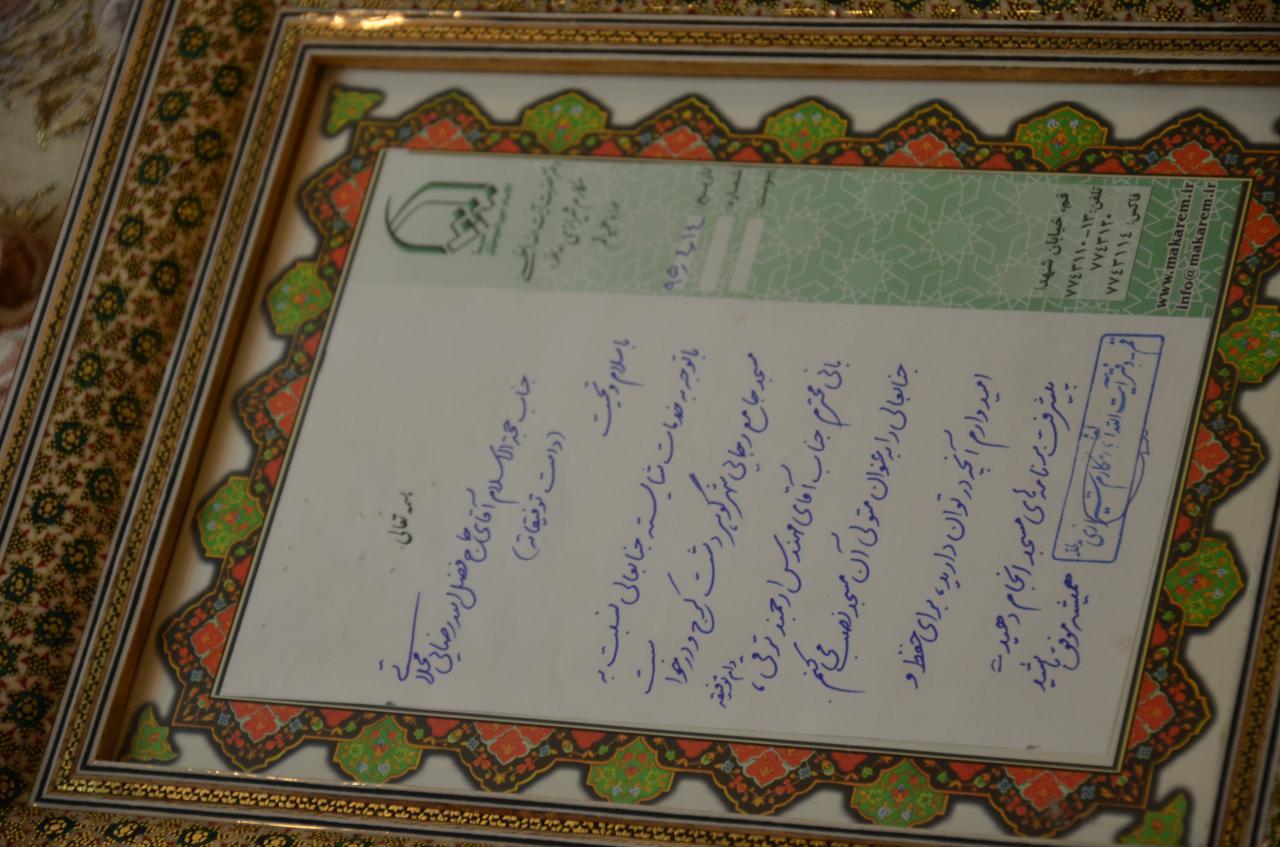 دفتر حضرت آیت الله العظمی
مکارم شیرازی
تاریخ: ۹۵٫۴٫۱٤
شماره:
پیوست:
بسمه تعالی
جناب حجة الاسلام آقای حاج فضل الله رضائی محلاتی
(دامت توفیقاته)
با سلام و تحیت
با توجه به خدمات شایسته جنابعالی نسبت به
مسجد جامع رجائی شهر گوهردشت کرج و درخواست
بانی محترم جناب آقای مهندس ارجمند ترقی، دام توفیقه
جنابعالی را به عنوان متولی آن مسجد نصب می کنم
امیدوارم آنچه در توان دارید، برای حفظ و
پیشرفت برنامه های مسجد انجام دهید
همیشه موفق باشید
قم، خیابان شهدا
تلفن: ۱۳-۷۷٤۳۱۱۰
۷۷٤۳۱۲۰
فاکس: ۷۷٤۳۱۱٤
www.makarem.ir
info@makarem.ir
قم - دفتر آیت الله العظمی مکارم شیرازی